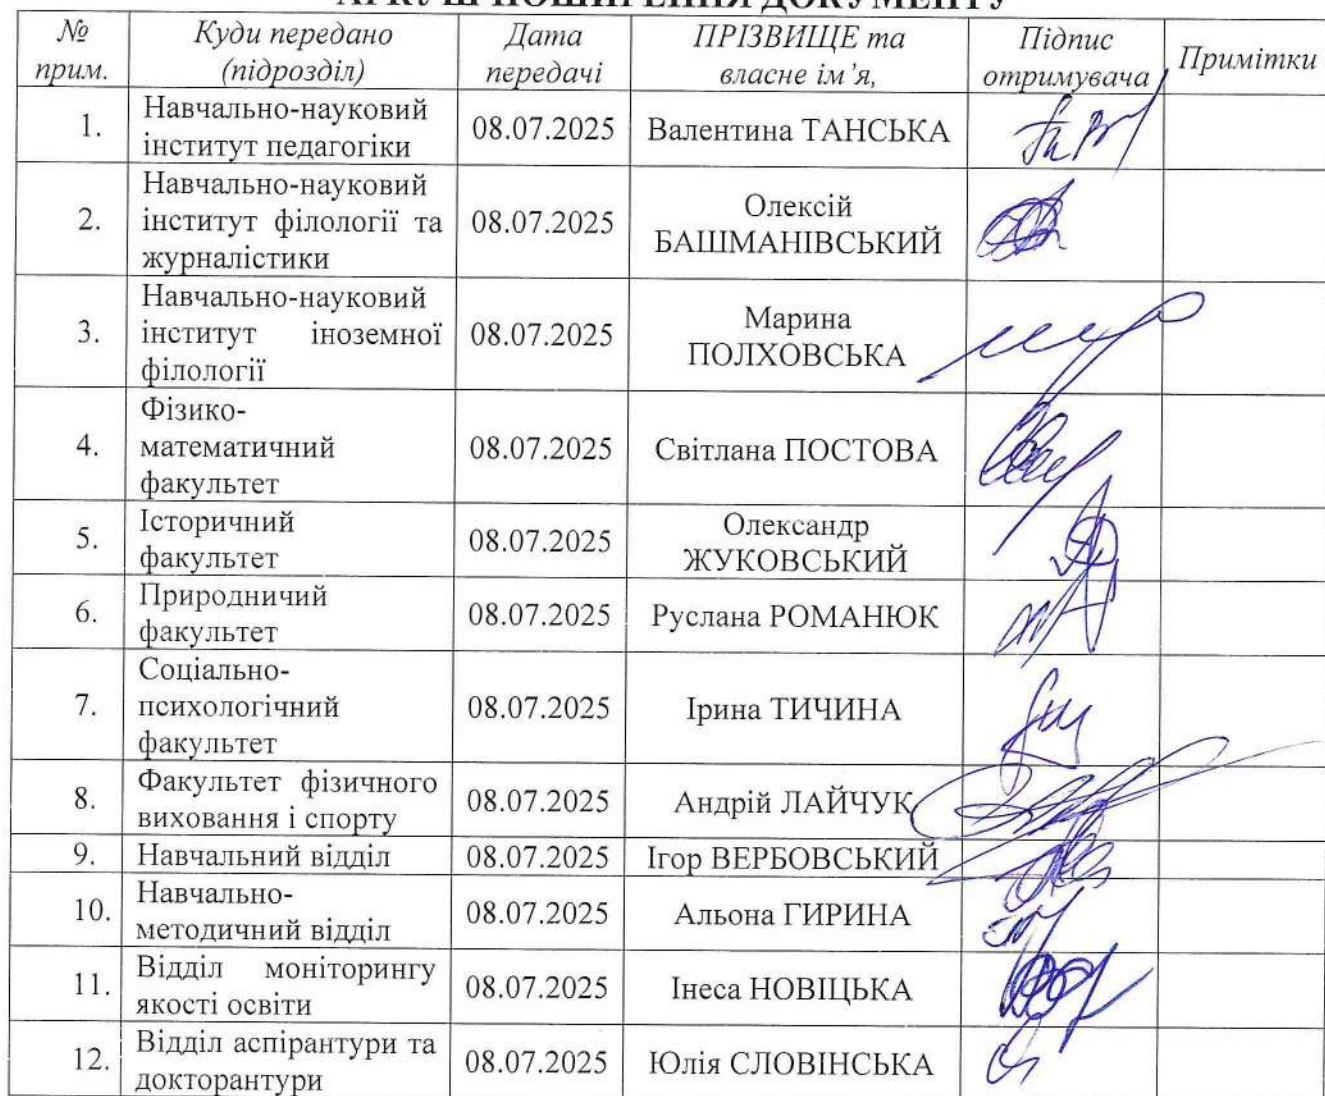 АРКУШ ПОШИРЕННЯ ДОКУМЕНТУ
№ прим. Куди передано (підрозділ) Дата передачі ПРІЗВИЩЕ та власне ім'я, Підпис отримувача Примітки
1. Навчально-науковий інститут педагогіки 08.07.2025 Валентина ТАНСЬКА
2. Навчально-науковий інститут філології та журналістики 08.07.2025 Олексій БАШМАНІВСЬКИЙ
3. Навчально-науковий інститут іноземної філології 08.07.2025 Марина ПОЛХОВСЬКА
4. Фізико-математичний факультет 08.07.2025 Світлана ПОСТОВА
5. Історичний факультет 08.07.2025 Олександр ЖУКОВСЬКИЙ
6. Природничий факультет 08.07.2025 Руслана РОМАНЮК
7. Соціально-психологічний факультет 08.07.2025 Ірина ТИЧИНА
8. Факультет фізичного виховання і спорту 08.07.2025 Андрій ЛАЙЧУК
9. Навчальний відділ 08.07.2025 Ігор ВЕРБОВСЬКИЙ
10. Навчально-методичний відділ 08.07.2025 Альона ГИРИНА
11. Відділ моніторингу якості освіти 08.07.2025 Інеса НОВІЦЬКА
12. Відділ аспірантури та докторантури 08.07.2025 Юлія СЛОВІНСЬКА